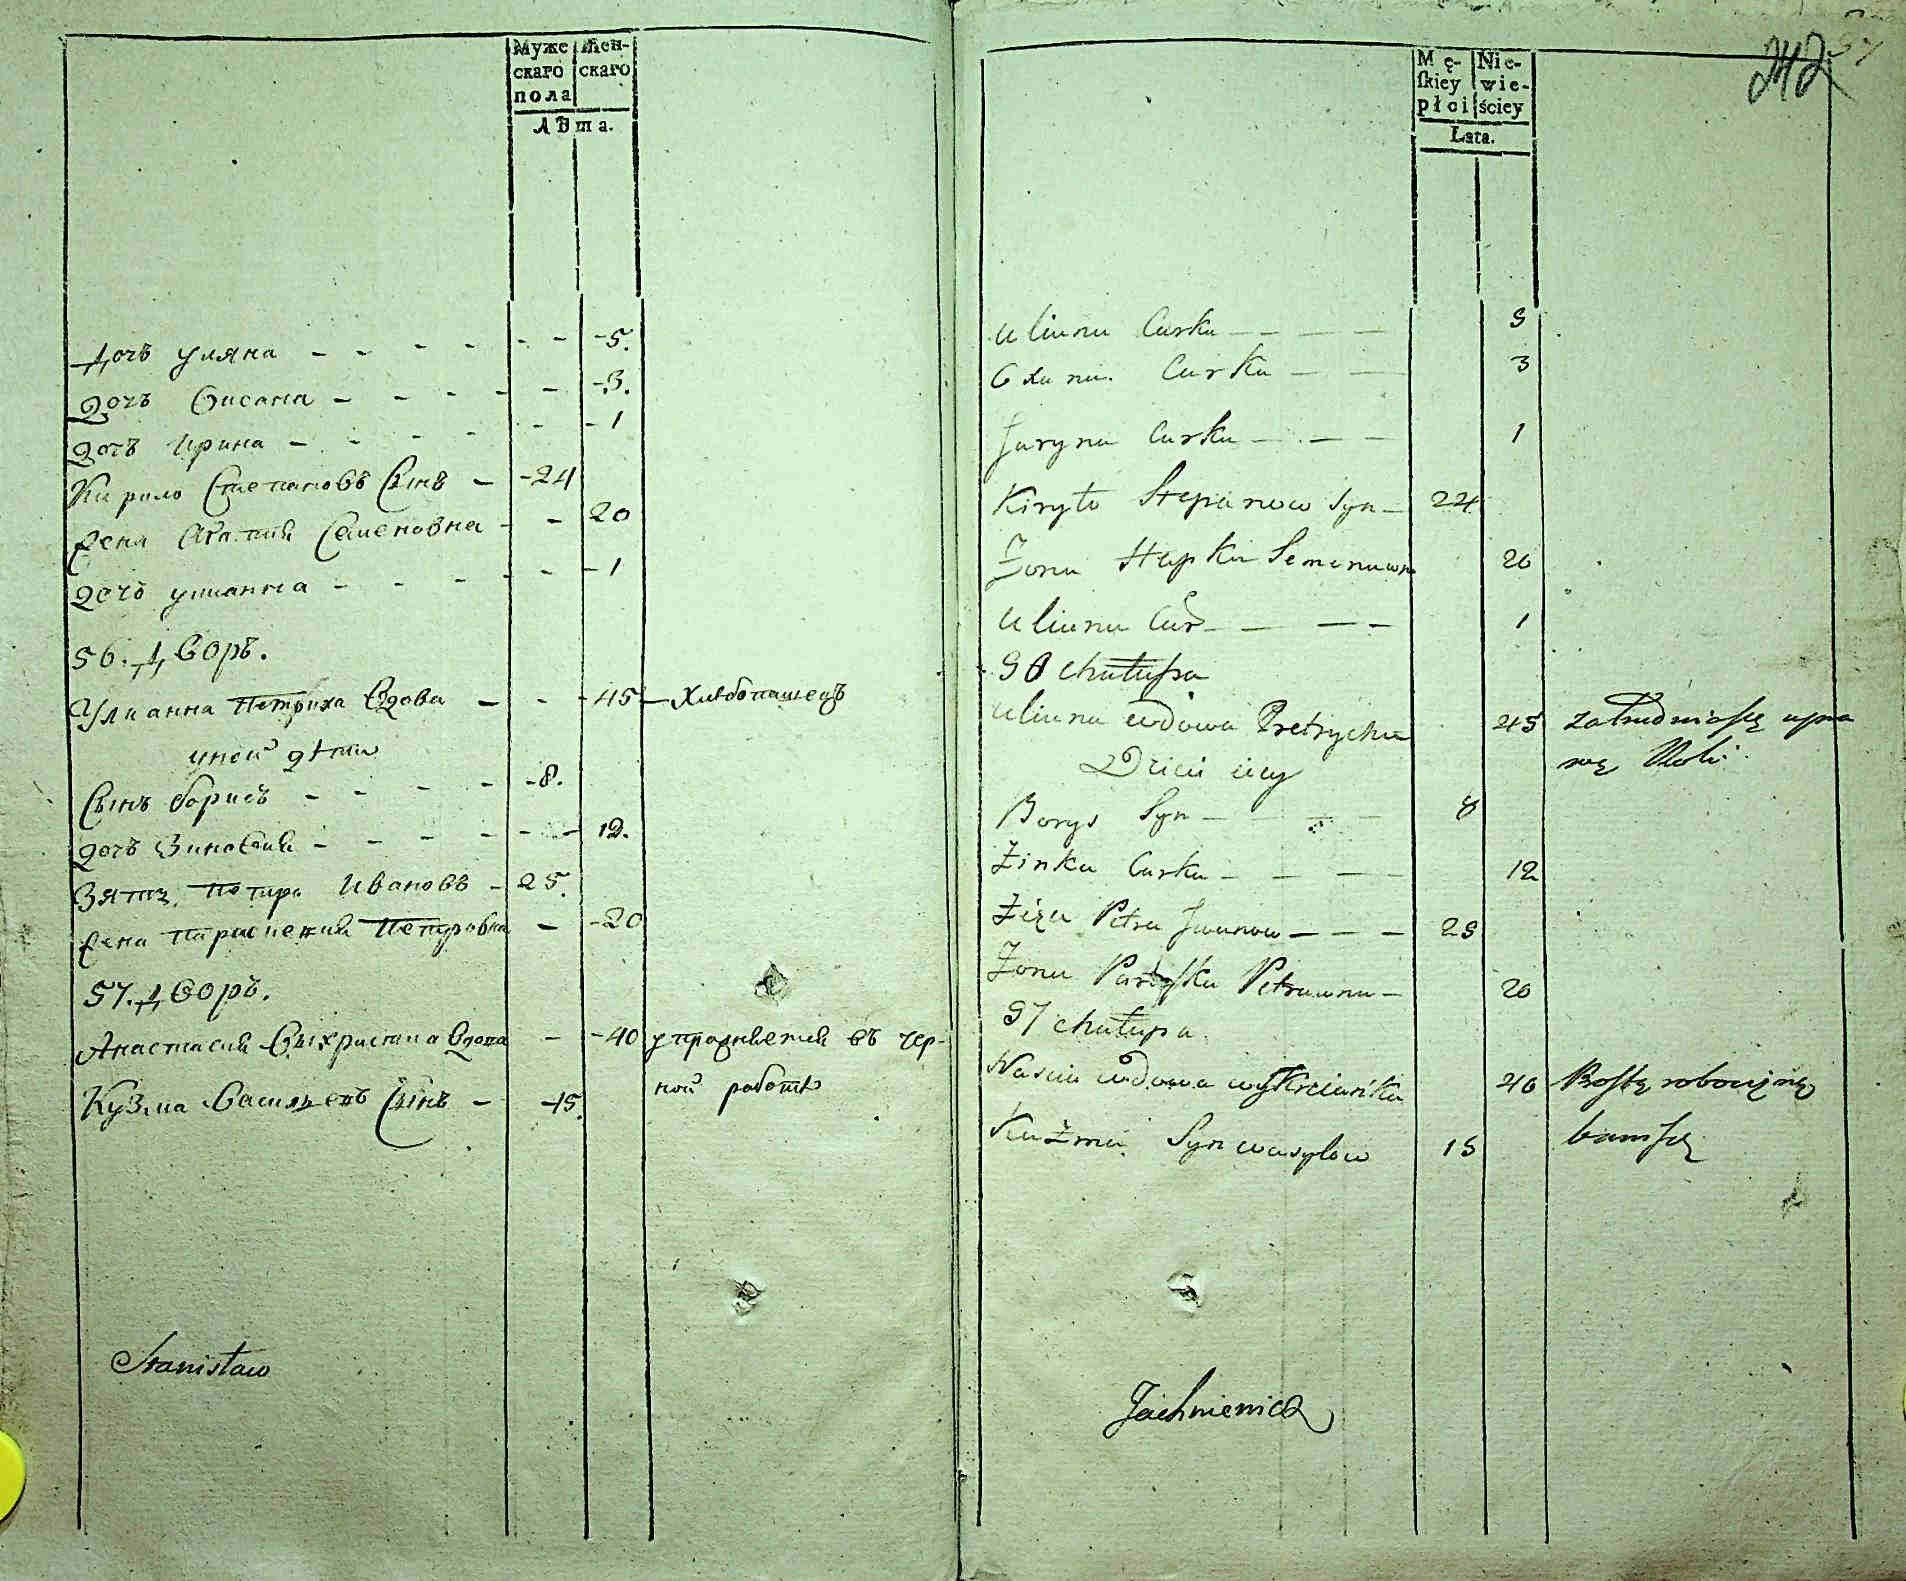 Муже
скаго
пола
Жен-
скаго
Лѣта.
дочь уляна - - - - - - -5.
дочь Оксана - - - - - -3.
дочь Ирина - - - - - -1
Кирило Степановъ Сынъ - -24
жена Агапия Семеновна - - 20
дочь улианна - - - - - -1
56. дворъ.
Улианна Петриха вдова - - -45 - хлѣбопашецъ
у ней дѣти
Сынъ борисъ - - - - -8.
дочь Зиновия - - - - - - 12.
Зять петръ Ивановъ - 25.
жена параскевия Петровна - -20
57. дворъ.
Анастасия вдова - -40 упражняется въ чер-
ной работѣ
Кузма Васильевъ Сынъ - -15.
Stanisław
242
57
Mę-
skiey
płci
Nie-
wie-
ściey
Lata.
Uliana Curka - - - - 5
Curka - - 3
Jaryna Curka - - - 1
Kiryło Stepanow Syn - 24
Żona Hapka Semenowna 20
Uliana Cur - - - - 1
56 chałupa
Uliana wdowa Petrycha 45 zatrudnia się upra
Dzieci iey wę Roli
Borys Syn - - - 8
Zinka Curka - - - - 12
Zięć Petra Iwanow - - - 25
Żona Paraska Petrowna - 20
57 chałupa
Nascia wdowa 40
Kuźma Syn wasylow 15
Jachniewicz